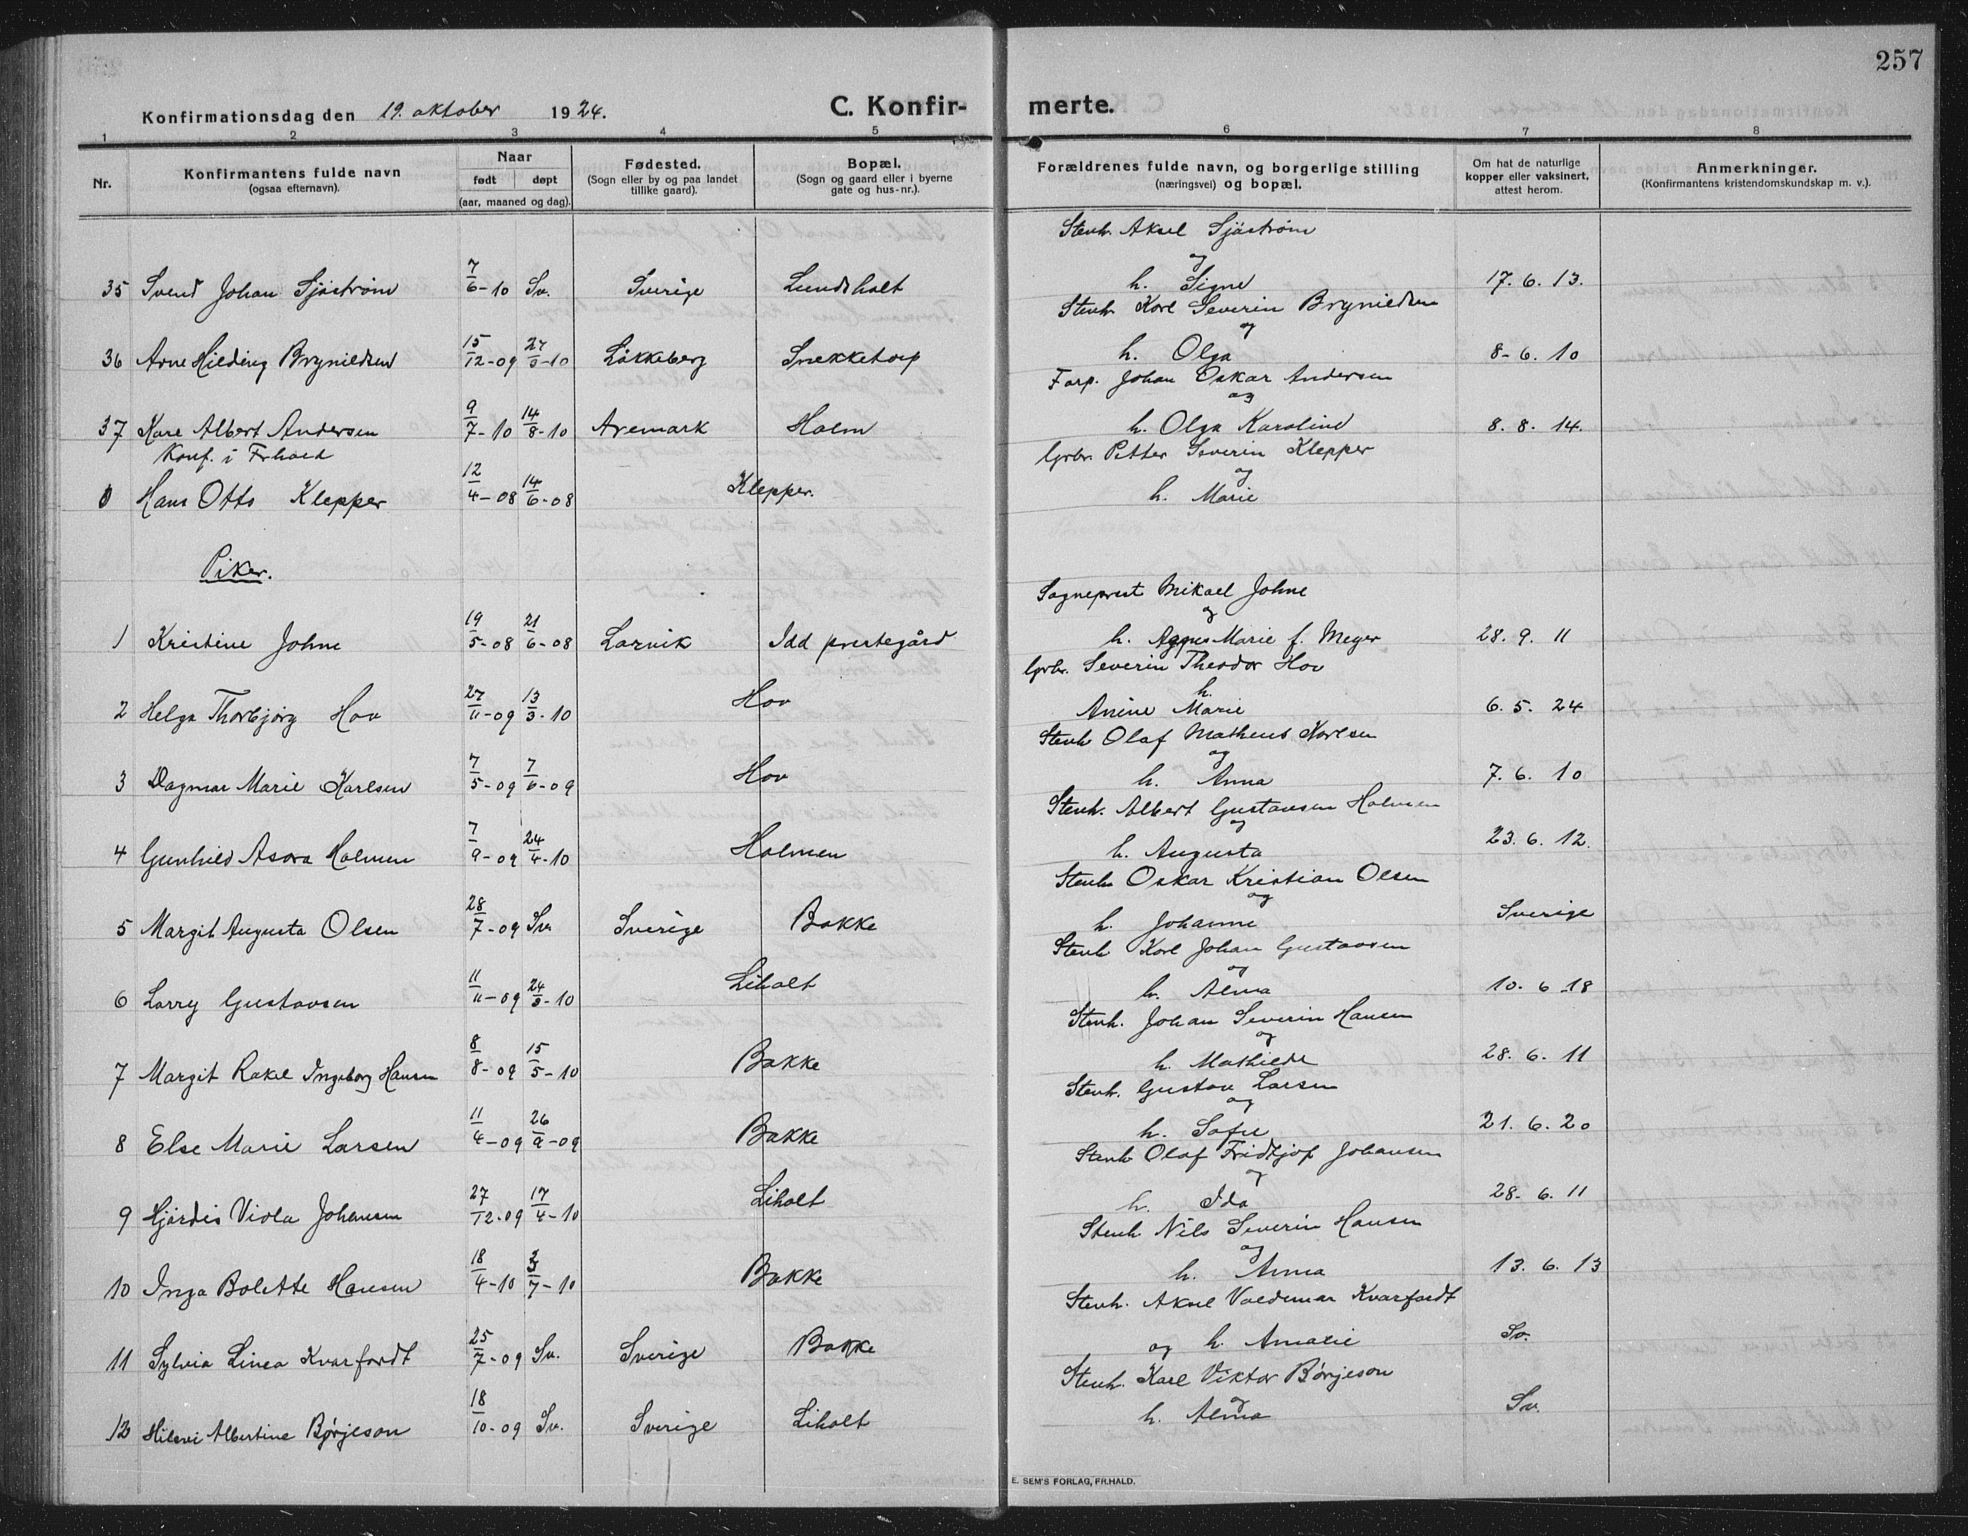 257
Konfirmationsdag den 19. oktober 1924. C. Konfir- merte.
1 2 3 4 5 6 7 8
Nr. Konfirmantens fulde navn (ogsaa efternavn). Naar født døpt (aar, maaned og dag). Fødested. (Sogn eller by og paa landet tillike gaard). Bopæl. (Sogn og gaard eller i byerne gate og hus-nr.). Forældrenes fulde navn, og borgerlige stilling (næringsvei) og bopæl. Om hat de naturlige kopper eller vaksinert, attest herom. Anmerkninger. (Konfirmantens kristendomskundskap m. v.).
Stenh. Aksel Sjöström
og
35 Svend Johan Sjöström 7/6-10 Sv. Sverige Lundsholt h. Signe 17. 6. 13.
Stenh. Karl Severin Brynildsen
og
36 Arne Hilding Brynildsen 15/12-09 27/3-10 Løkkeberg Snekketorp h. Olga 8-6. 10
Farp. Johan Oskar Andersen
og
37 Kare Albert Andersen 9/7-10 14/8-10 Aremark Holm h. Olga Karoline 8. 8. 14.
Konf. i Frhald
Grbr. Petter Severin Klepper
og
0 Hans Otto Klepper 12/4-08 14/6-08 Klepper. h. Marie
Piker.
Sogneprest Mikael Johne
og
1 Kristine Johne 19/5-08 21/6-08 Larvik Idd prestegård h. Agnes Marie f. Meyer 28. 9. 11
Grbr. Severin Theodor Hov
h.
2 Helga Thorbjørg Hov 27/11-09 13/3-10 Hov Anine Marie 6. 5. 24
Stenh. Olaf Matheus Karlsen
og
3 Dagmar Marie Karlsen 7/5-09 7/6-09 Hov h. Anna 7. 6. 10
Stenh. Albert Gustavsen Holmen
og
4 Gunhild Asora Holmen 7/9-09 24/4-10 Holmen h. Augusta 23. 6. 12.
Stenh Oskar Kristian Olsen
og
5 Margit Augusta Olsen 28/7-09 Sv Sverige Bakke h. Johanne Sverige
Stenh Karl Johan Gustavsen
og
6 Larry Gustavsen 11/11-09 24/3-10 Liholt h. Alma 10. 6. 18
Stenh. Johan Severin Hansen
og
7 Margit Rakel Ingeborg Hansen 8/8-09 15/5-10 Bakke h. Mathilde 28. 6. 11
Stenh. Gustav Larsen
og
8 Else Marie Larsen 11/4-09 26/9-09 Bakke h. Sofie 21. 6. 20
Stenh Olaf Fridtjof Johansen
og
9 Hjørdis Viola Johansen 27/12-09 17/4-10 Liholt h. Ida 28. 6. 11
Stenh Nils Severin Hansen
og
10 Inga Bolette Hansen 18/4-10 3/7-10 Bakke h. Anna 13. 6. 13
Stenh. Aksel Valdemar Kvarfordt
11 Sylvia Linea Kvarfordt 25/7-09 Sv. Sverige Bakke og h. Amalie Sv.
Stenh. Karl Viktor Børjeson
og
12 Hilevi Albertine Børjeson 18/10-09 Sv. Sverige Liholt h. Alma Sv.
E. SEM'S FORLAG, FR.HALD.